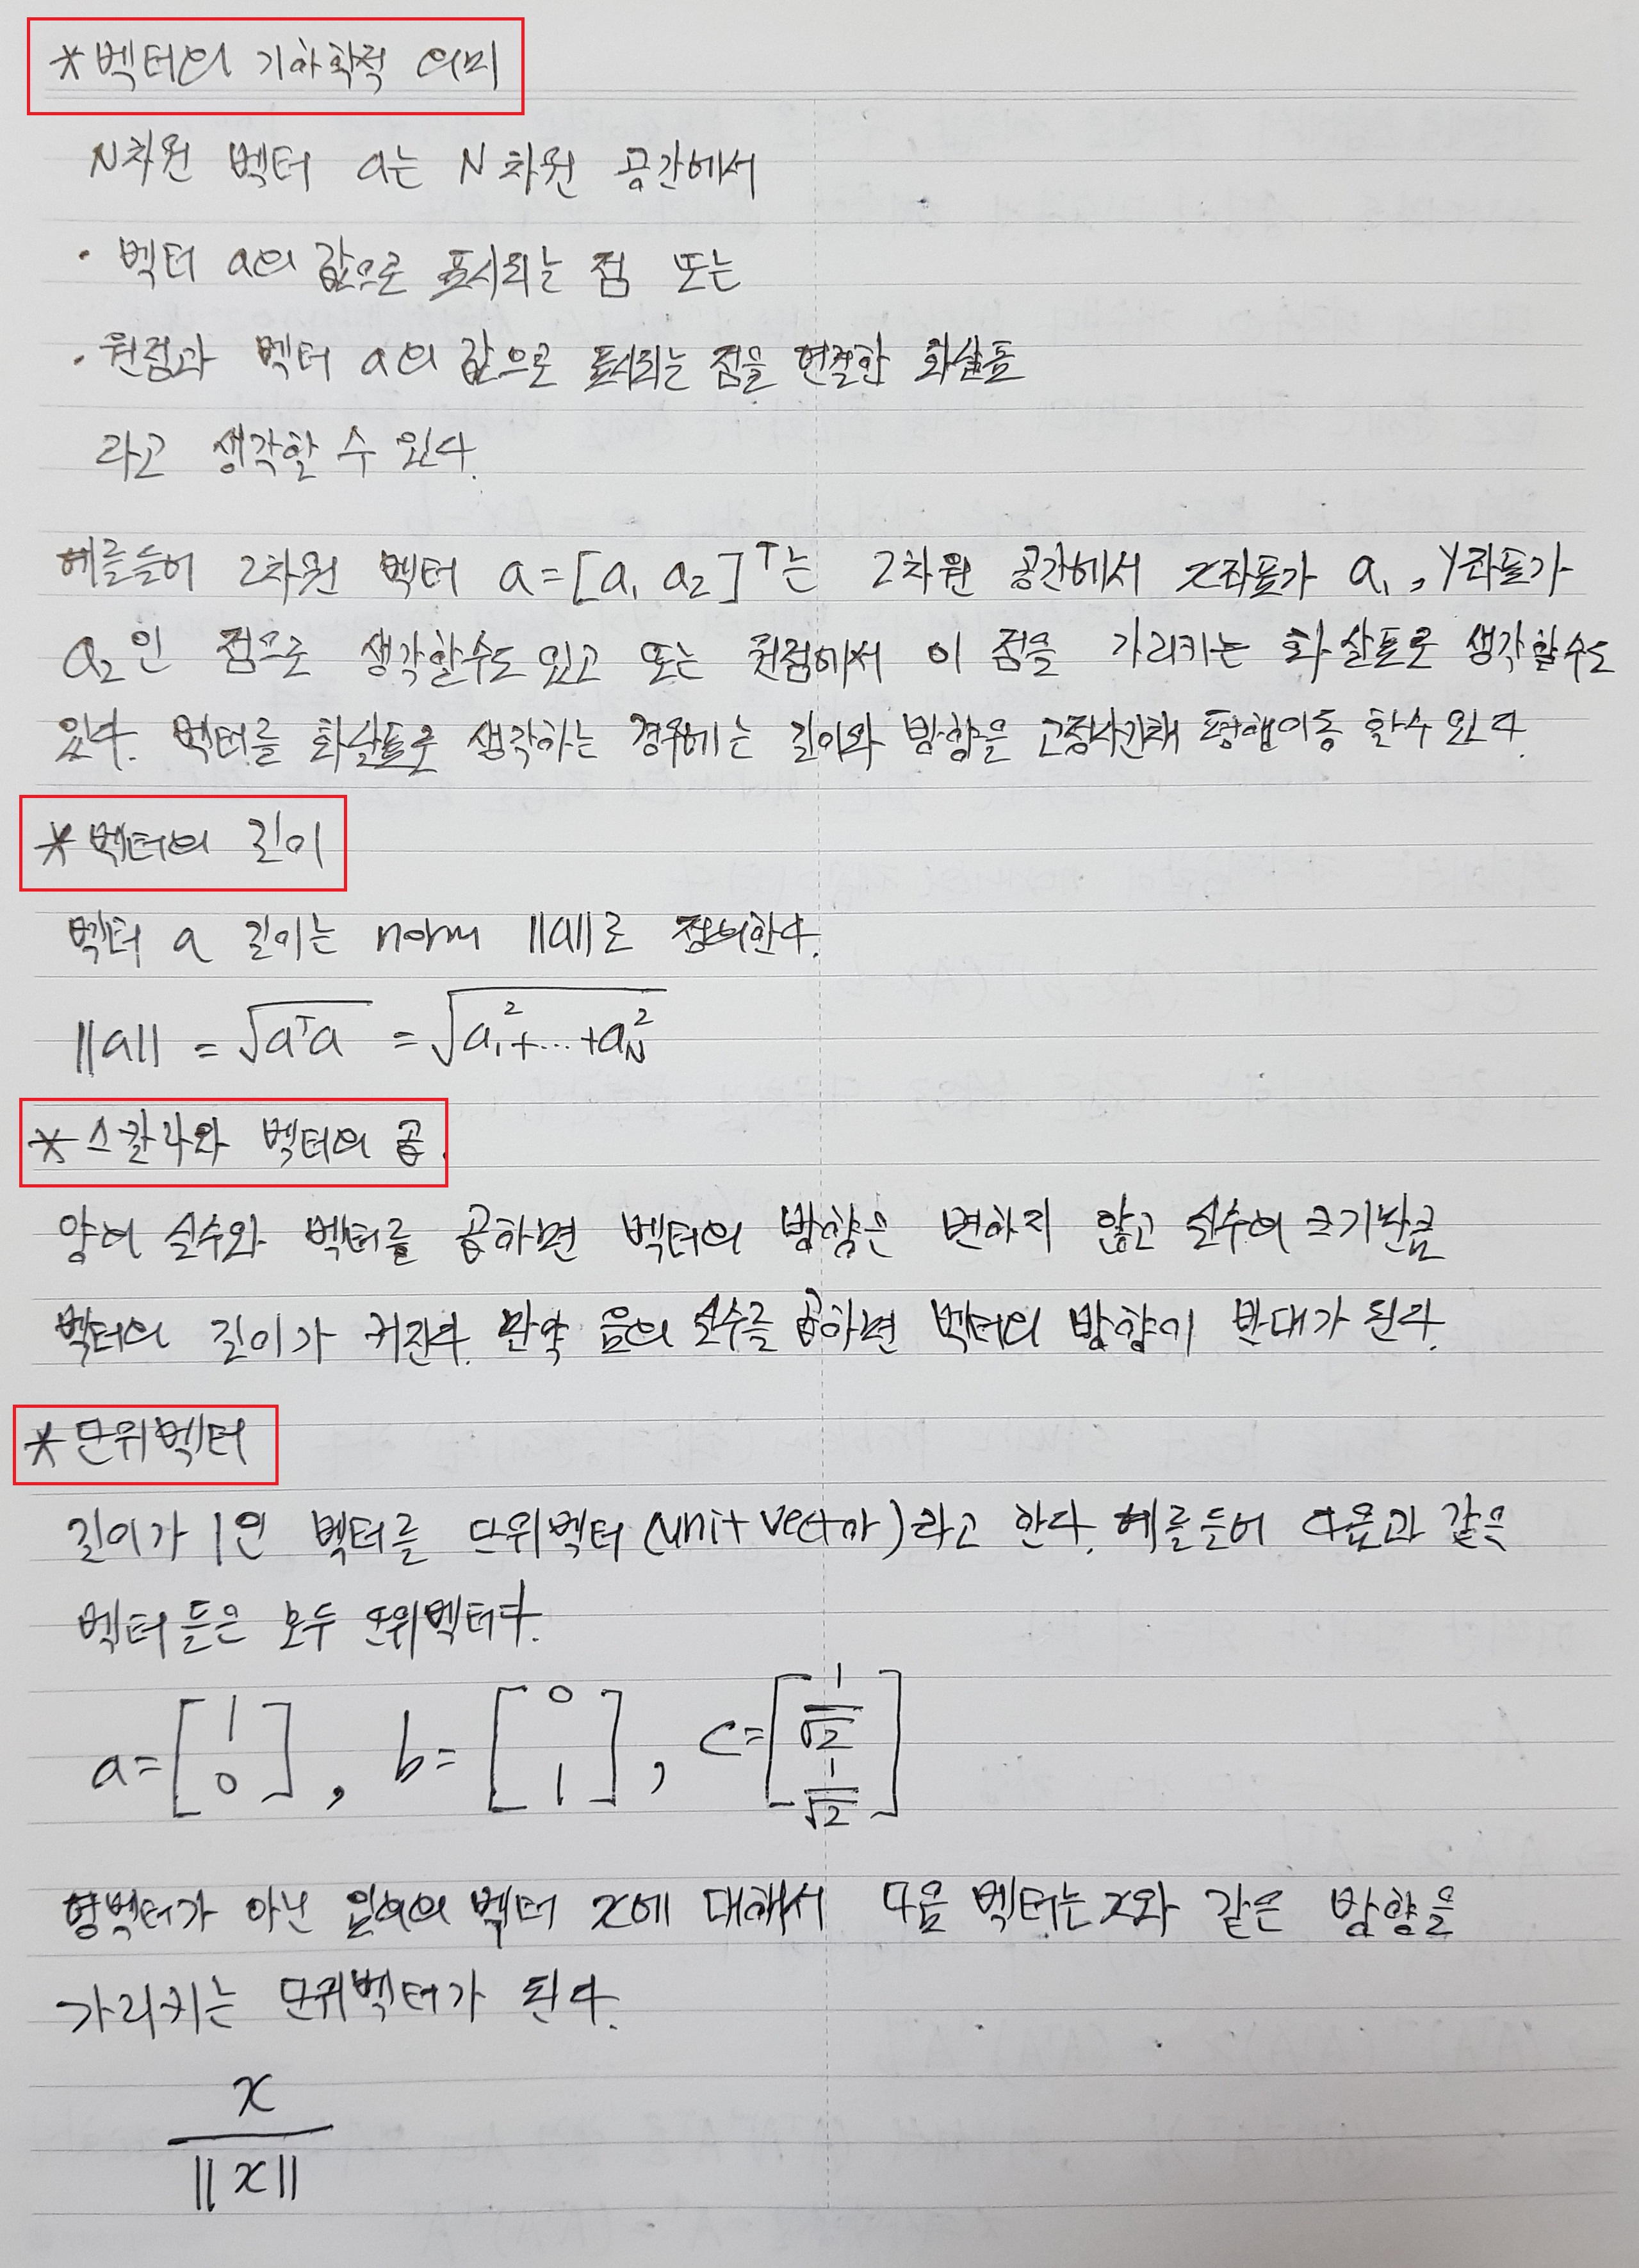 *벡터의 기하학적 의미
N차원 벡터 a는 N차원 공간에서
· 벡터 a의 값으로 표시되는 점 또는
· 원점과 벡터 a의 값으로 표시되는 점을 연결한 화살표
라고 생각할 수 있다.
예를들어 2차원 벡터 a=[a₁ a₂]ᵀ는 2차원 공간에서 x좌표가 a₁, y좌표가
a₂인 점으로 생각할수도 있고 또는 원점에서 이 점을 가리키는 화살표로 생각할수도
있다. 벡터를 화살표로 생각하는 경우에는 길이와 방향을 고정시킨채 평행이동 할수 있다.
*벡터의 길이
벡터 a 길이는 norm ||a||로 정의한다.
||a|| = √(aᵀa) = √(a₁²+...+a_N²)
*스칼라와 벡터의 곱.
양의 실수와 벡터를 곱하면 벡터의 방향은 변하지 않고 실수의 크기만큼
벡터의 길이가 커진다. 만약 음의 실수를 곱하면 벡터의 방향이 반대가 된다.
*단위벡터
길이가 1인 벡터를 단위벡터(unit vector)라고 한다. 예를들어 다음과 같은
벡터들은 모두 단위벡터다.
a=[1 0], b=[0 1], c=[1/√2 1/√2]
영벡터가 아닌 임의의 벡터 x에 대해서 다음 벡터는 x와 같은 방향을
가리키는 단위벡터가 된다.
x
||x||